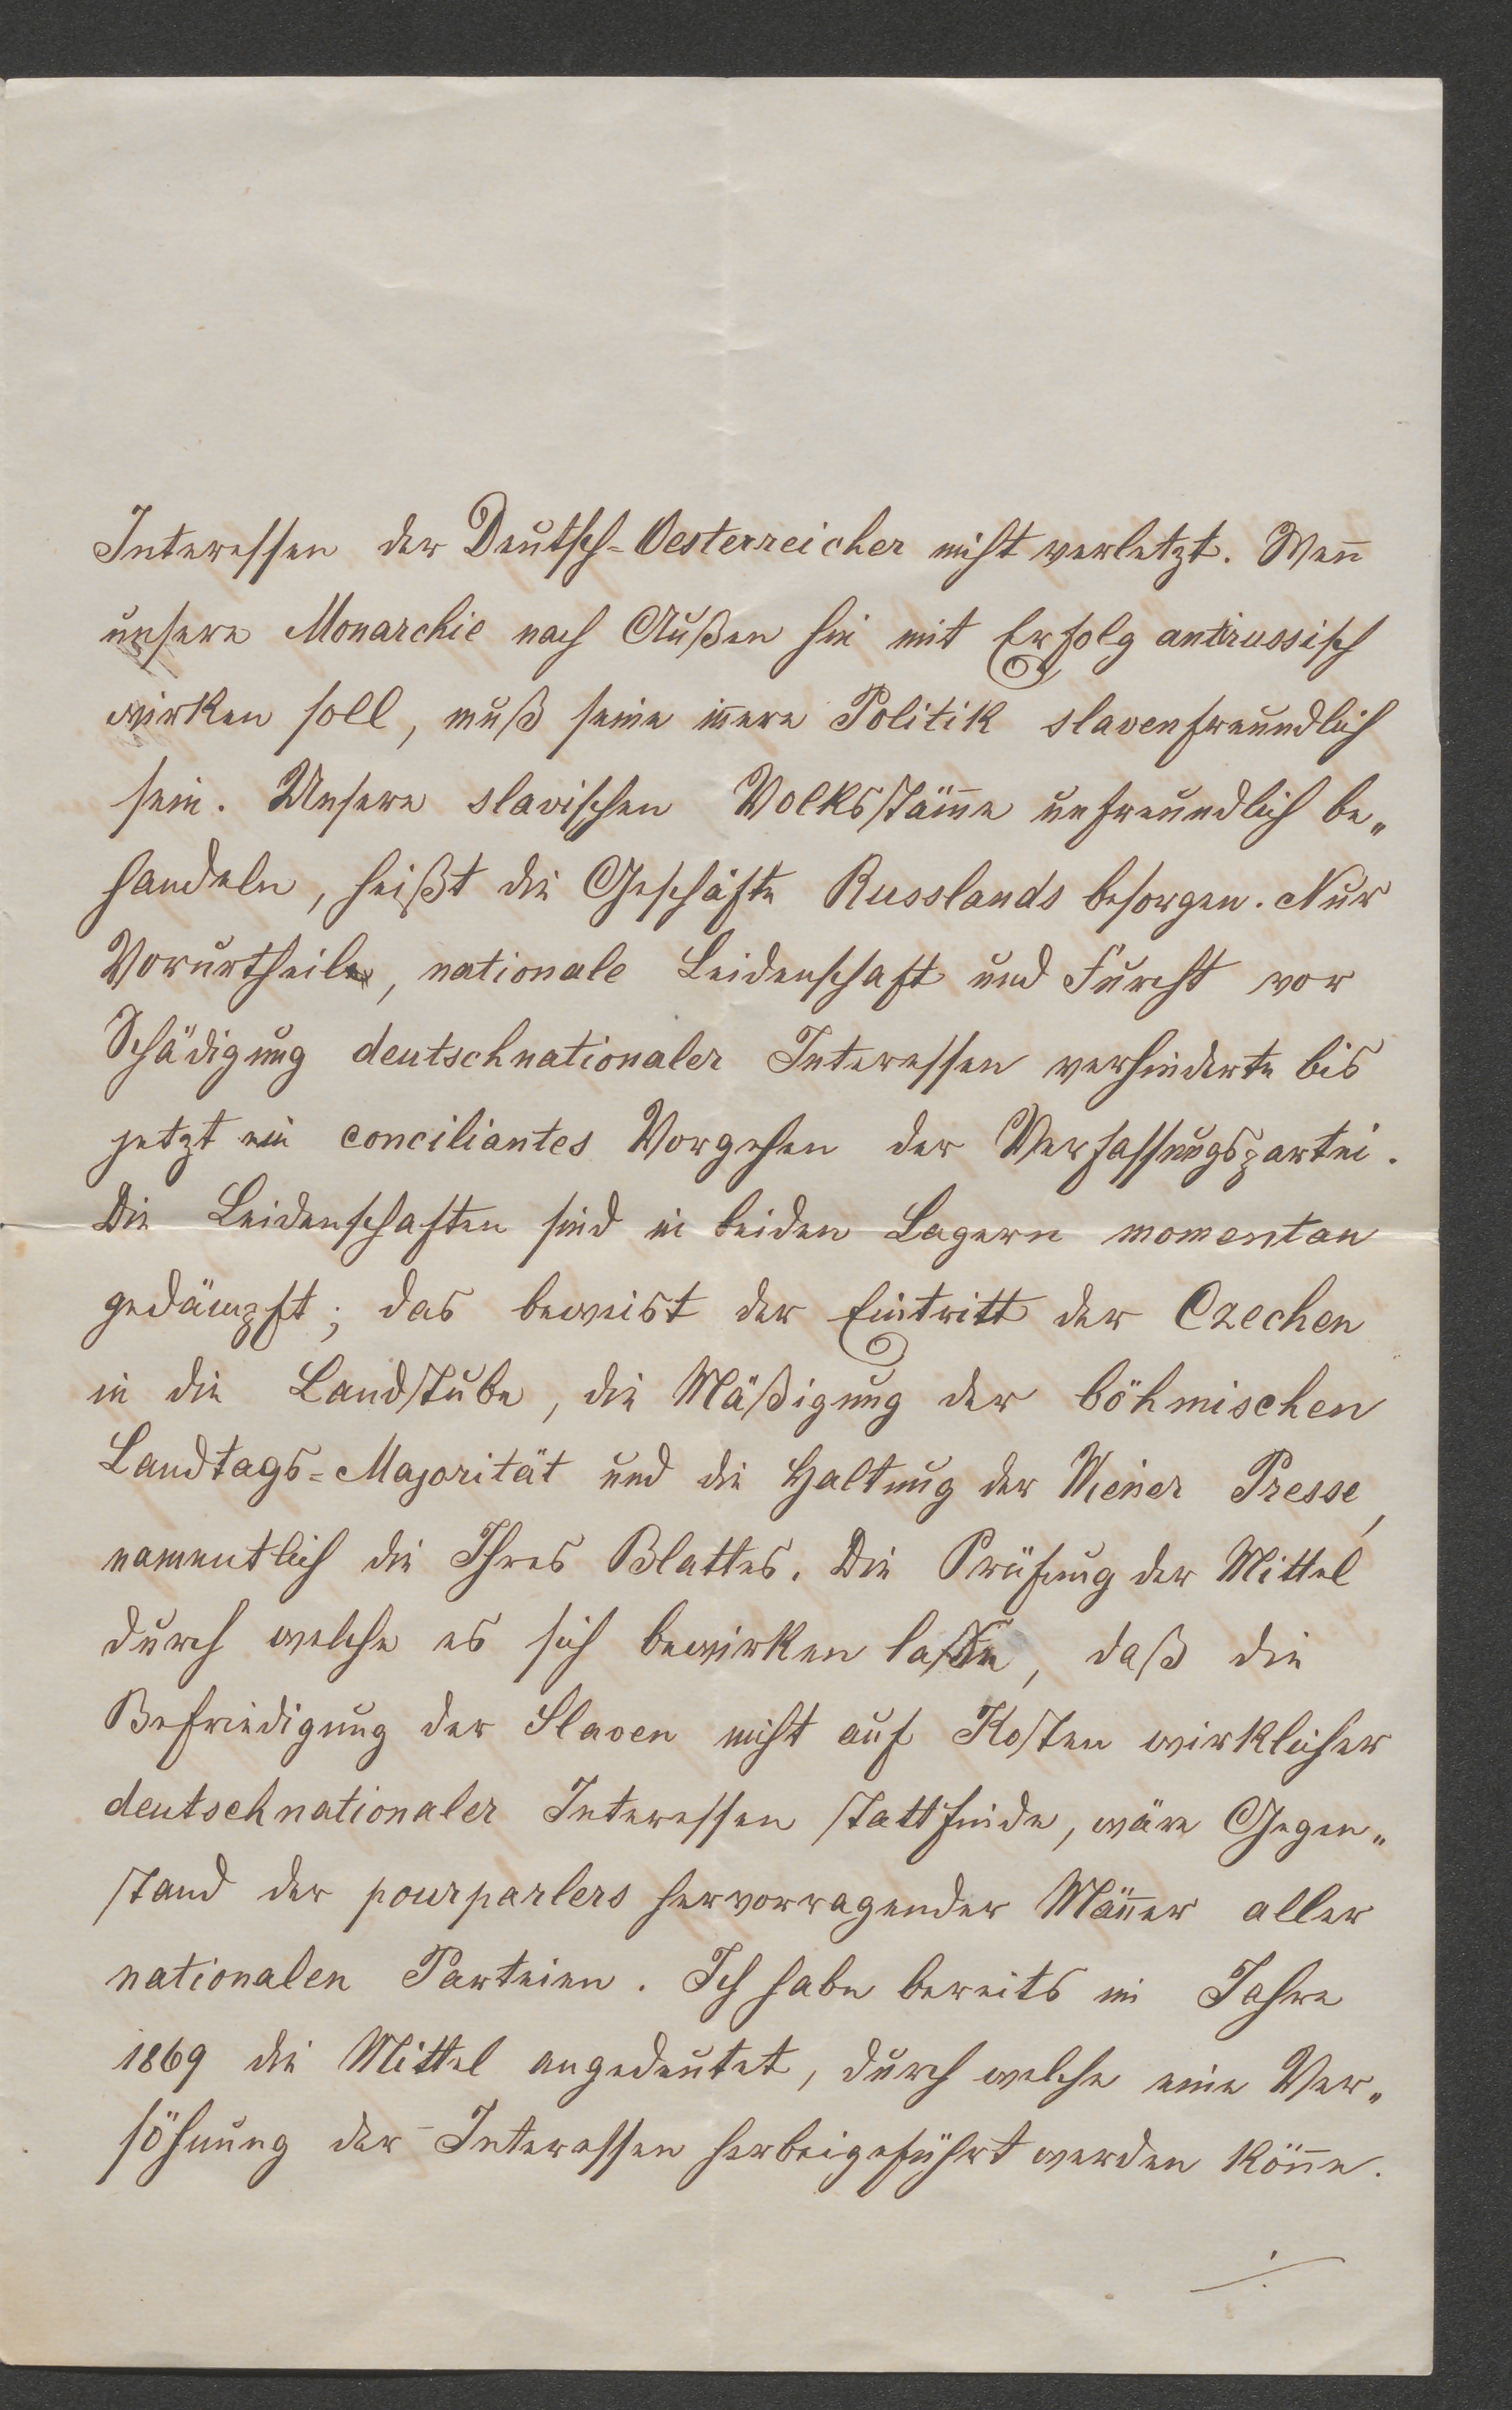 Interessen der Deutsch-Oesterreicher nicht verletzt. Weñ
unsere Monarchie nach Außen hin mit Erfolg antirussisch
wirken soll, muß seine iñere Politik slavenfreundlich
sein. Unsere slavischen Volksstäm̃e unfreundlich be„
handeln, heißt die Geschäfte Russlands besorgen. Nur
Vorurtheile, nationale Leidenschaft und Furcht vor
Schädigung deutschnationaler Interessen verhinderte bis
jetzt ein conciliantes Vorgehen der Verfassungspartei.
Die Leidenschaften sind in beiden Lagern momentan
gedämpft; das beweist der Eintritt der Czechen
in die Landstube, die Mäßigung der böhmischen
Landtags-Majorität und die Haltung der Wiener Presse,
namentlich die Ihres Blattes. Die Prüfung der Mittel
durch welche es sich bewirken laße, daß die
Befriedigung der Slaven nicht auf Kosten wirklicher
deutschnationaler Interessen stattfinde, wäre Gegen„
stand der pourparlers hervorragender Mäñer aller
nationalen Parteien. Ich habe bereits im Jahre
1869 die Mittel angedeutet, durch welche eine Ver„
söhnung der Interessen herbeigeführt werden köñe.
./.